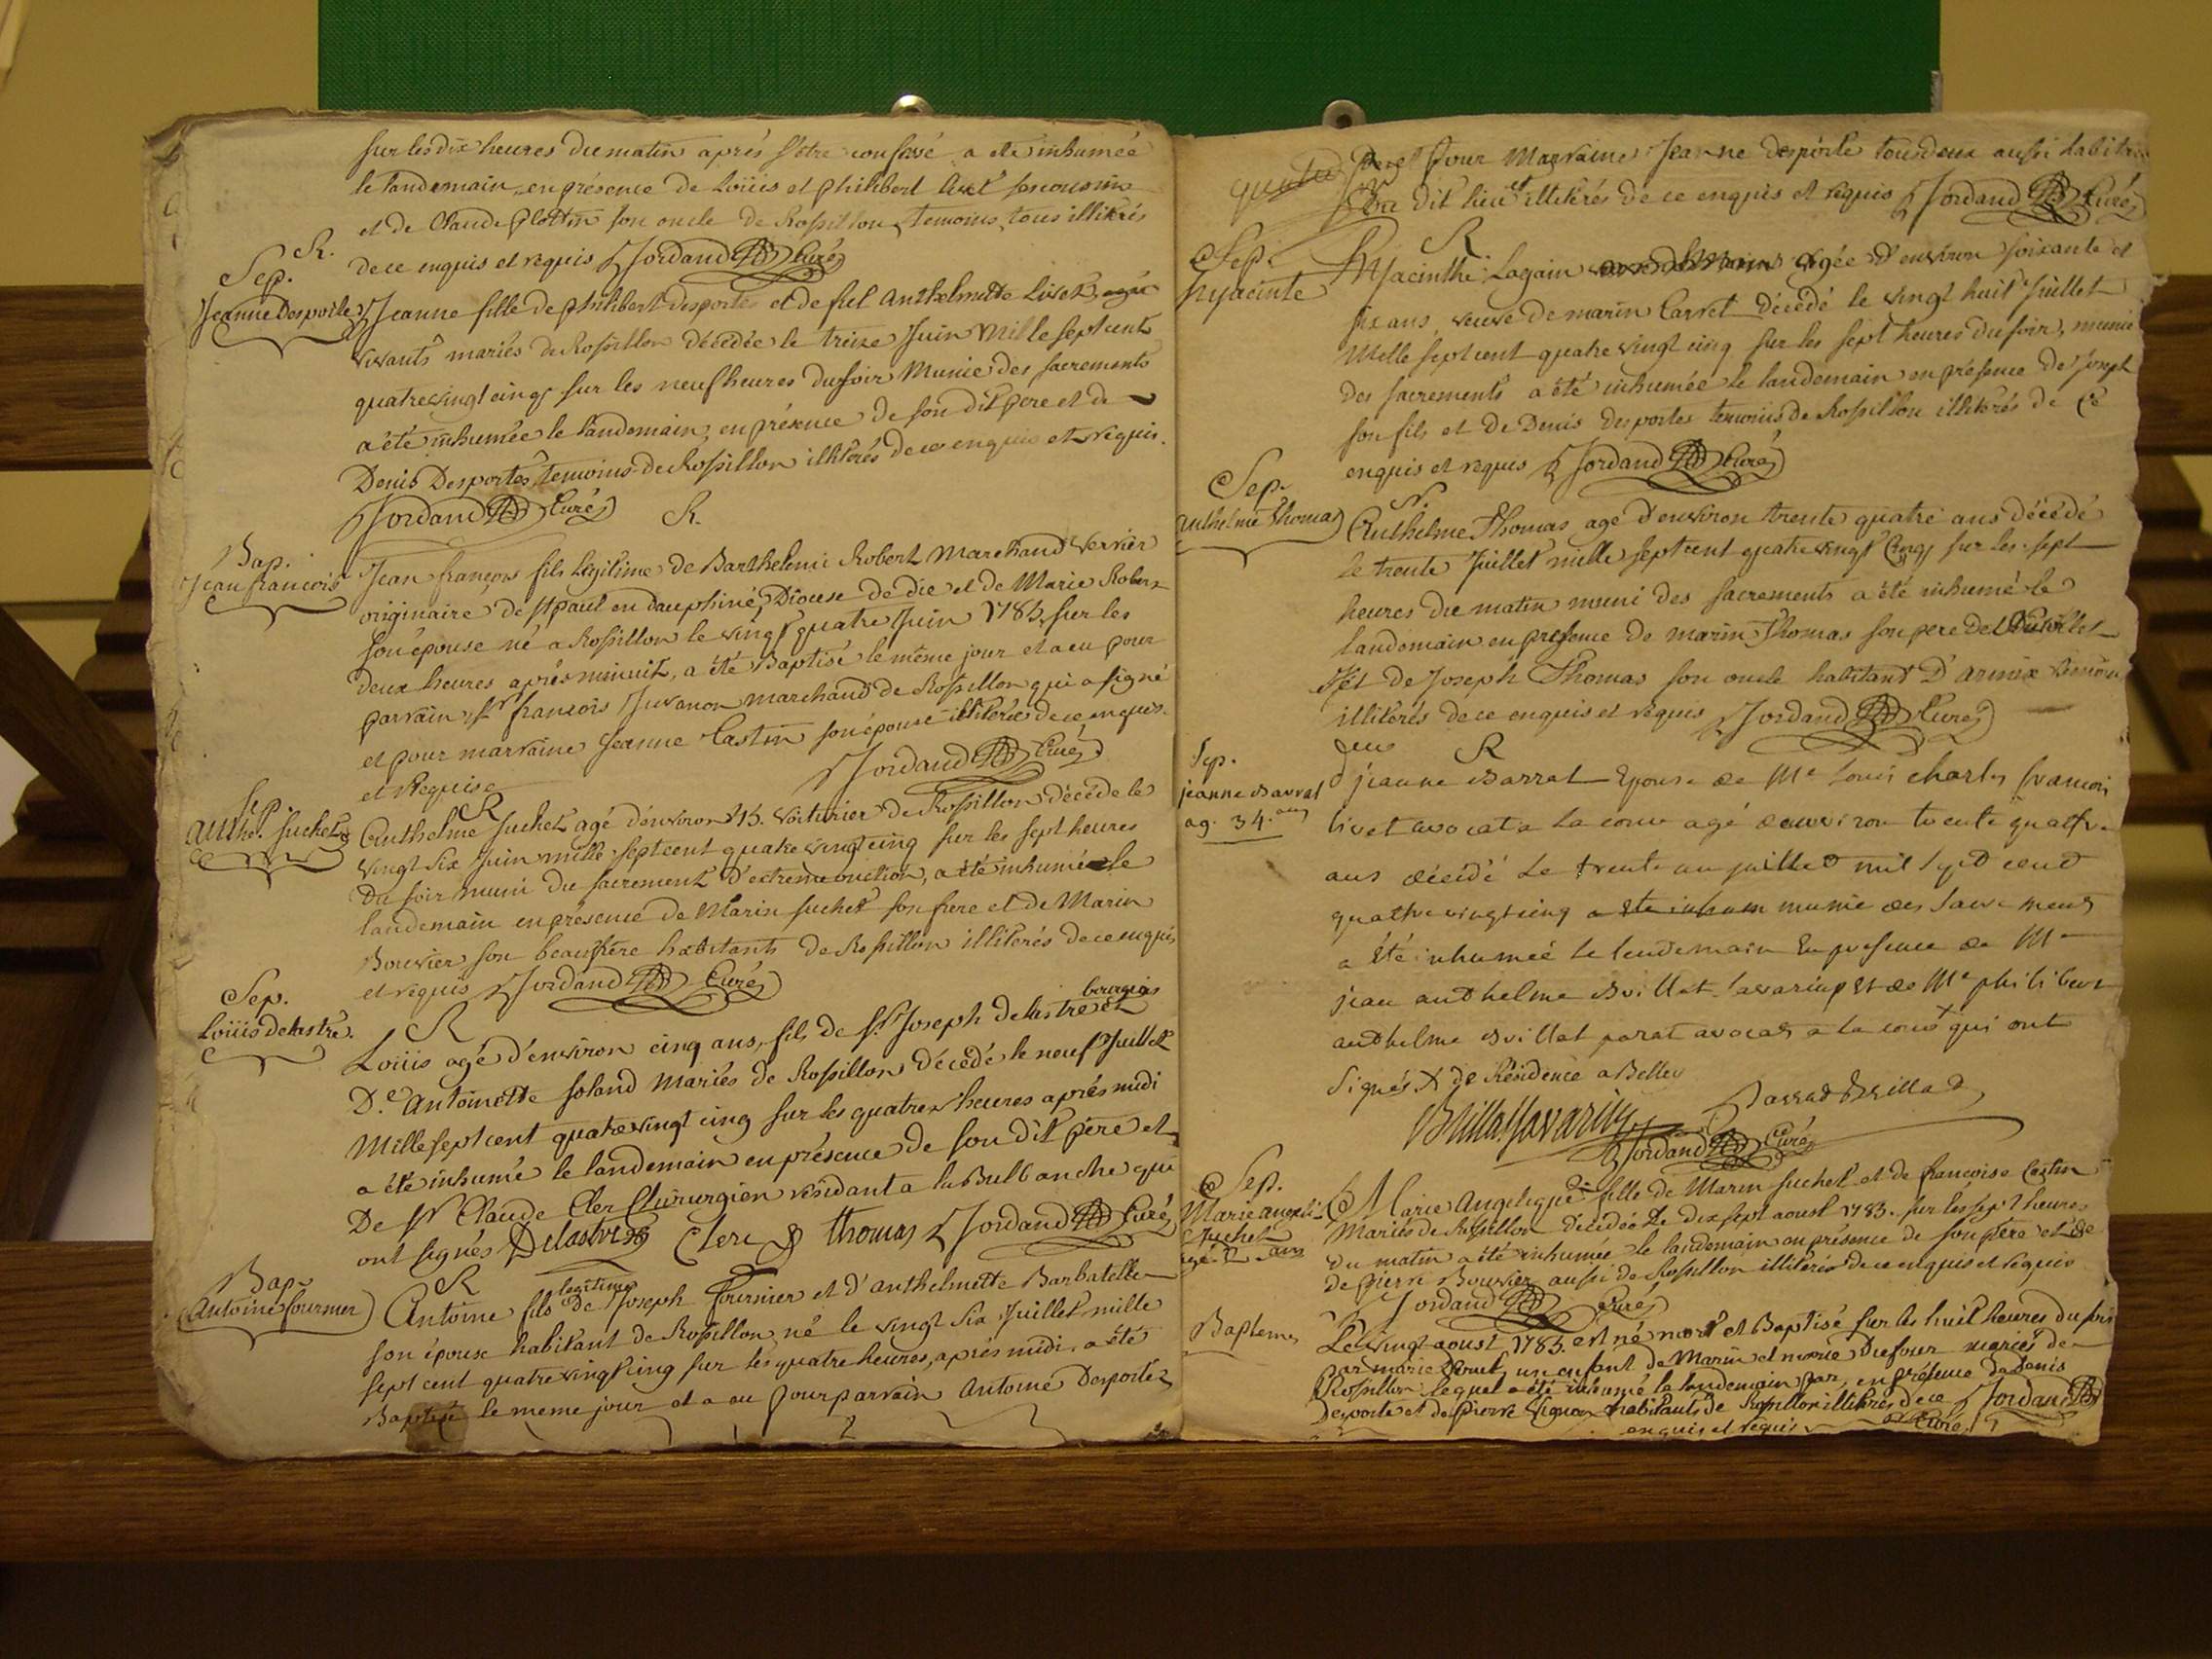 sur les dix heures du matin après s'être confessé a été inhumée
le landemain en présence de Loüis et philibert son cousin
et de Claude son oncle de Rossillon temoins, tous illitérés
de ce enquis et requis Jordand Curé
R.
Sep.
Jeanne Desportes
Jeanne fille de philibert desportes et de feüe Anthelmette Livet
vivants mariés de Rossillon décédée le treize Juin Mille sept cent
quatrevingt cinq sur les neuf heures du soir Munie des sacrements
a été inhumée le landemain, en présence de son dit pere et de
Denis Desportes, temoins de Rossillon illitérés de ce enquis et requis.
Jordand Curé
R.
Bap.
Jean francois
Jean françois fils légitime de Barthelemi Robert Marchand verrier
originaire de st paul en dauphiné, Diocese de die et de Marie Robert
son épouse né a Rossillon le vingt quatre Juin 1785, sur les
deux heures après minuit, a été Baptisé le même jour et a eu pour
parrain, sr françois Juvanon marchand de Rossillon qui a signé
et pour marraine Jeanne Castin son épouse illiterée de ce enquise
et Requise
Jordand Curé
Sep.
Anthe. Suchet
R
Anthelme Suchet agé d'environ 45. voiturier de Rossillon décédé le
vingt six Juin mille sept cent quatre vingt cinq sur les sept heures
Du soir muni du sacrement d'extreme onction, a été inhumé le
landemain en présence de Marin Suchet son frere et de Marin
Bouvier son beaufrère habitants de Rossillon illiterés de ce enquis
et requis Jordand Curé
Sep.
Loüis delastre.
R
bourgeois
Loüis agé d'environ cinq ans, fils de sr Joseph delastre et
D.e Antoinette soland Mariés de Rossillon décédé le neuf Juillet
Mille sept cent quatrevingt cinq sur les quatres heures après midi
a été inhumé le landemain en présence de son dit pere et
De sr Claude Cler Chirurgien résidant a la Bulbanche qui
ont signés Delastre Clerc thomas Jordand Curé
Bap.
Antoine fournier
R
légitime
Antoine fils de Joseph fournier et d'anthelmette Barbatelle
son épouse habitant de Rossillon, né le vingt six Juillet mille
sept cent quatrevingt cinq sur les quatre heures, après midi. a été
Baptisé le meme jour et a eu pour parrain Antoine Desportes
pour Marraine Jeanne desporte tous deux aussi habitan
Du dit lieu et illitérés de ce enquis et requis Jordand Curé
Sep.
hyacinte
R
Hyacinthe Logain agée d'environ soixante et
six ans, veuve de marin Carret décédé le vingt huit Juillet
Mille sept cent quatre vingt cinq sur les sept heures du soir, munie
des sacrements a été inhumée le landemain en présence de Joseph
son fils et de Denis desportes temoins de Rossillon illiterés de ce
enquis et requis Jordand Curé
Sep.
anthelme Thomas
R.
Anthelme Thomas agé d'environ trente quatre ans décédé
le trente Juillet mille sept cent quatre vingt cinq sur les sept
heures du matin muni des sacrements a été inhumé le
landemain en présence de marin Thomas son pere
et de Joseph Thomas son oncle habitant D'armix
illiterés de ce enquis et requis Jordand Curé
Sep.
jeanne Barrat
ag. 34. ans
R
jeanne Barrat Epouse de Me Louis charles francois
livet avocat a la cour agé denviron trente quatre
ans décédé Le trente un juillet mil sept cent
quatre vingt cinq a ete inhum munie des sacremens
a été inhumeé le lendemain En presence de Me
jean anthelme Brillat Savarin et de Me philibert
anthelme Brillat parat avocat a la cour X qui ont
Signés X de Résidence a Belley
Brillat Savarin
Barrat Brillat
Jordand Curé
Sep.
Marie angeli
Suchet
agé 2 ans
Marie Angelique fille de Marin Suchet et de francoise Castin
Mariés de Rossillon décédée Le dix sept aoust 1785. sur les sept heures
du matin a été inhumée le landemain en présence de son pere et de
de pierre Bouvier aussi de Rossillon illitérés de ce enquis et requis
Jordand Curé
Bapteme
Le vingt aoust 1785. est né mort et Baptisé sur les huit heures du soir
par marie un enfant de Marin et marie Dufour mariés de
Rossillon lequel a été inhumé le landemain par, en présence de Denis
Desporte et de pierre habitants de Rossillon illitérés de ce Jordand
enquis et requis Curé